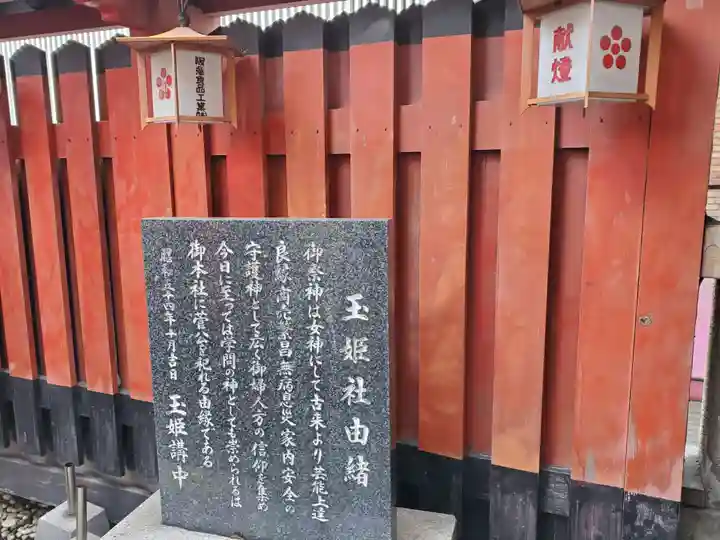 玉姫社由緒
御祭神は女神にして古来より芸能上達
良縁商売繁昌無病息災家内安全の
守護神として広く御婦人方の信仰を集め
今日に至っては学問の神としても崇められるは
御本社に菅公を祀れる由縁である
昭和五十四年十月吉日
玉姫講中
献燈